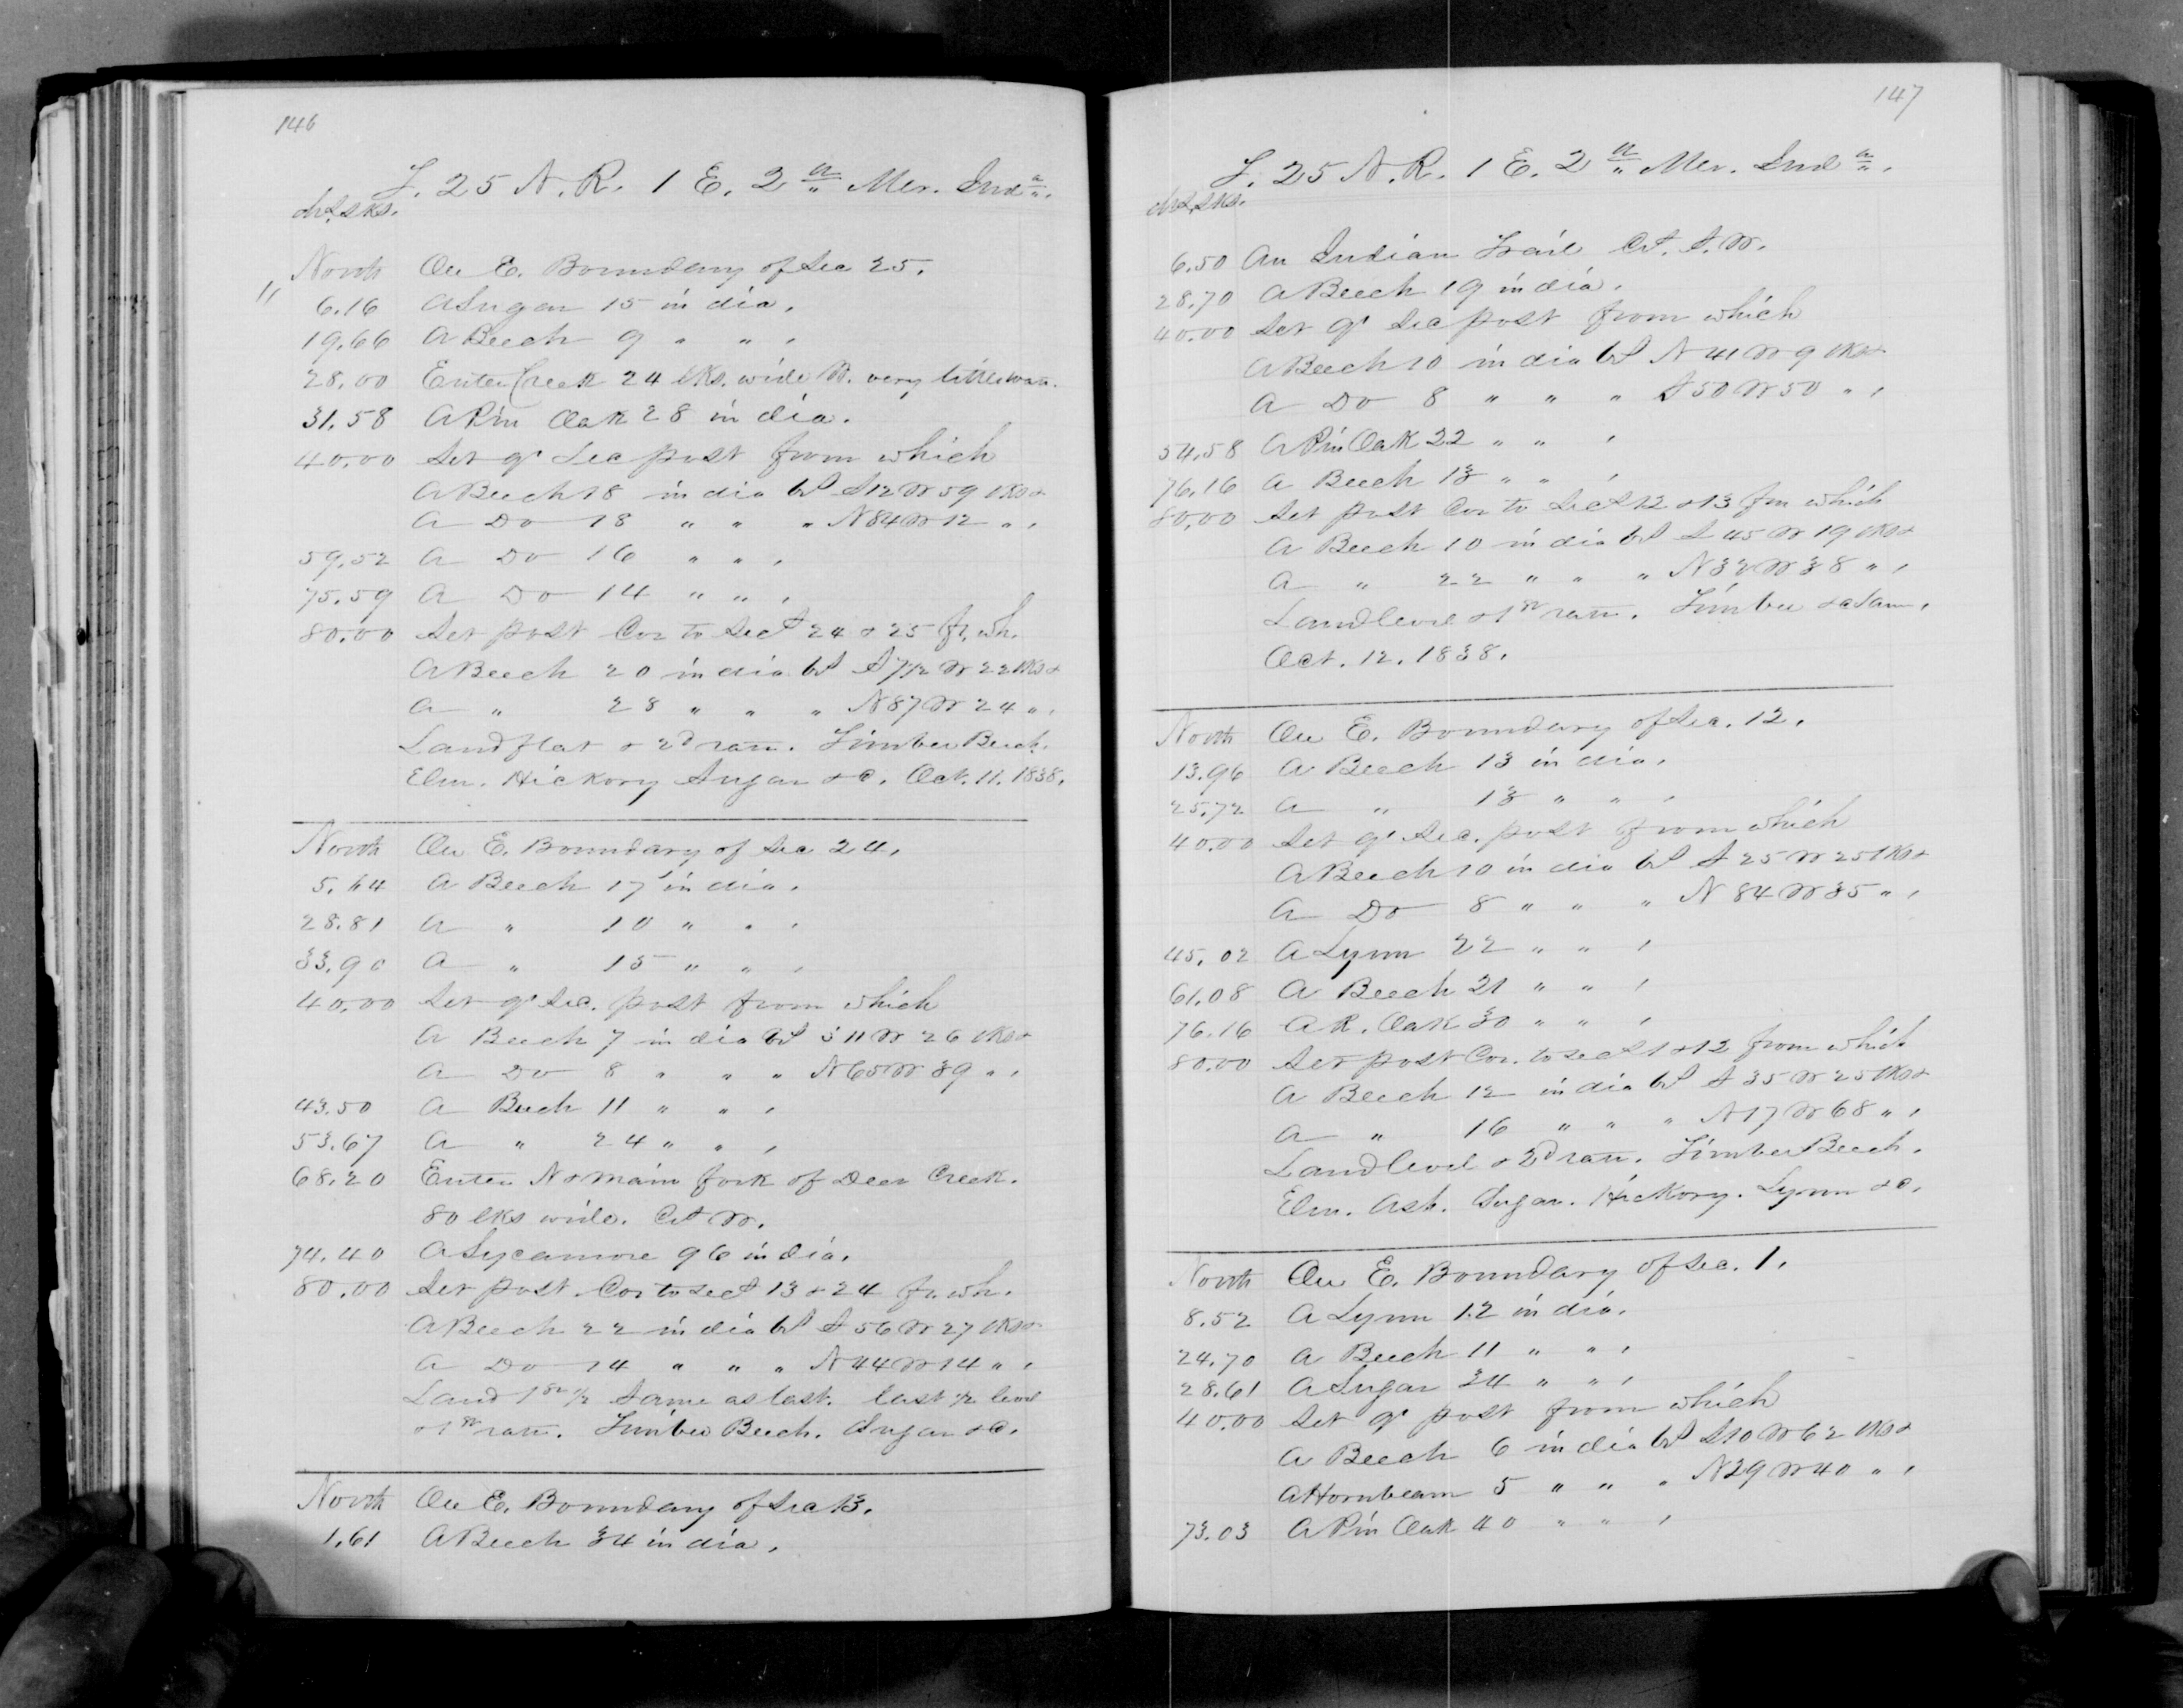 146
T. 25 N. R. 1 E. 2nd Mer. Inda.
chs. lks.
North On E. Boundary of Sec 25.
" 6.16 A Sugar 15 in dia.
19.66 A Beech 9 " " .
28.00 Enter Creek 24 lks. wide W. very little wan.
31.58 A Pin Oak 28 in dia.
40.00 Set qr Sec post from which
A Beech 18 in dia brs S12W 59 lks &
A Do 18 " " " N84W 12 " .
59.52 A Do 16 " " .
75.59 A Do 14 " " .
80.00 Set post Cor to Secs 24 & 25 fr. wh.
A Beech 20 in dia brs S71/2 W 22 lks &
A " 28 " " " N87W 24 " .
Land flat & 2d rate. Timber Beech.
Elm. Hickory Sugar &c. Oct. 11. 1838.
North On E. Boundary of Sec 24.
5.64 A Beech 17 in dia.
28.81 A " 10 " " .
33.90 A " 15 " " .
40.00 Set qr Sec. post from which
A Beech 7 in dia brs S11W 26 lks &
A Do 8 " " " N65W 39 " .
43.50 A Beech 11 " " .
53.67 A " 24 " " .
68.20 Enter N & main fork of Deer Creek.
80 lks wide. Crs W.
74.40 A Sycamore 96 in dia.
80.00 Set post Cor to secs 13 & 24 fr. wh.
A Beech 22 in dia brs S56W 27 lks &
A Do 14 " " " N44W 14 " .
Land 1st 1/2 same as last. last 1/2 level
& 1st rate. Timber Beech. Sugar &c.
North On E. Boundary of Sec 13.
1.61 A Beech 34 in dia.
147
T. 25 N. R. 1 E. 2nd Mer. Inda.
chs. lks.
6.50 An Indian Trail Crs. S.W.
28.70 A Beech 19 in dia.
40.00 Set qr Sec post from which
A Beech 10 in dia brs N41W 9 lks &
A Do 8 " " " S50W 50 " .
54.58 A Pin Oak 22 " " .
76.16 A Beech 13 " " .
80.00 Set post Cor to Secs 12 & 13 fm which
A Beech 10 in dia brs S45W 19 lks &
A " 22 " " " N32W 38 " .
Land level & 1st rate. Timber &c Sam.
Oct. 12. 1838.
North On E. Boundary of Sec. 12.
13.96 A Beech 13 in dia.
25.72 A " 13 " " .
40.00 Set qr Sec. post from which
A Beech 10 in dia brs S25W 25 lks &
A Do 8 " " " N84W 35 " .
45.02 A Lynn 22 " " .
61.08 A Beech 21 " " .
76.16 A R. Oak 30 " " .
80.00 Set post Cor. to secs 1 & 12 from which
A Beech 12 in dia brs S35W 25 lks &
A " 16 " " " N17W 68 " .
Land level & 2d rate. Timber Beech.
Elm. Ash. Sugar. Hickory. Lynn &c.
North On E. Boundary of Sec. 1.
8.52 A Lynn 12 in dia.
24.70 A Beech 11 " " .
28.61 A Sugar 24 " " .
40.00 Set qr post from which
A Beech 6 in dia brs S10W 62 lks &
A Hornbeam 5 " " " N29W 40 " .
73.03 A Pin Oak 40 " " .